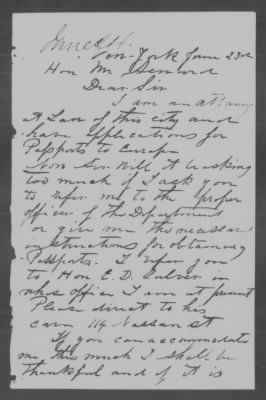 New-York June 23d
Hon Mr Seward
Dear Sir
I am an attorney
at Law of this city and
have applications for
Passports to Europe
Now Sir Will it be asking
too much if I ask you
to refer me to the proper
officer of the Department
or give me the necessary
instructions for obtaining
Passports. I refer you
to Hon E. D. Culver in
whos office I am at present
Please direct to his
care 114 Nassau st
If you can accommodate
me this much I shall be
thankful and if it is